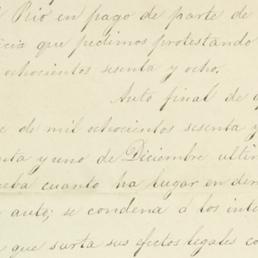 Rio en pago de parte de
icia que pedimos protestando
ochocientos sesenta y ocho.
Auto final de
e de mil ochocientos sesenta y
nta y uno de Diciembre ultim
eba cuanto ha lugar en der
auto; se condena á los inte
que surta sus efectos legales co